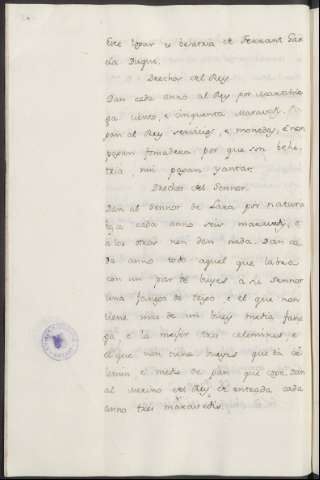 Este logar es behetria de Ferrant Gar
cia Duque.
Derechos del Rey.
Dan cada anno al Rey por Martinie
ga ciento, e cinquenta Maravedis.
pan al Rey servicios, e monedas, e non
pagan fonsadera por que son behe,
tria, nin pagan yantar.
Derechos del Sennor.
Dan al Sennor de Lara por natura
leza cada anno seis maravedis, e
a los otros non dan nada. Dan ca
da anno todo aquel que labra
con un par de bueyes a su Sennor
una fanega de trigo e el que non
tiene mas de un buey media fane
ga, e la mujer tres celemines e
el que non tiene bueyes que da ce
lemin e medio de pan que coge. Dan
al Merino del Rey de entrada cada
anno tres maravedis.